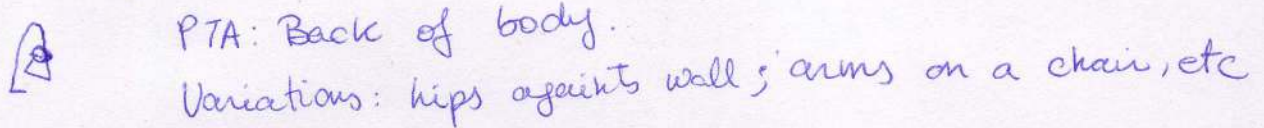 PTA: Back of body.
Variations: hips againts wall; arms on a chair, etc